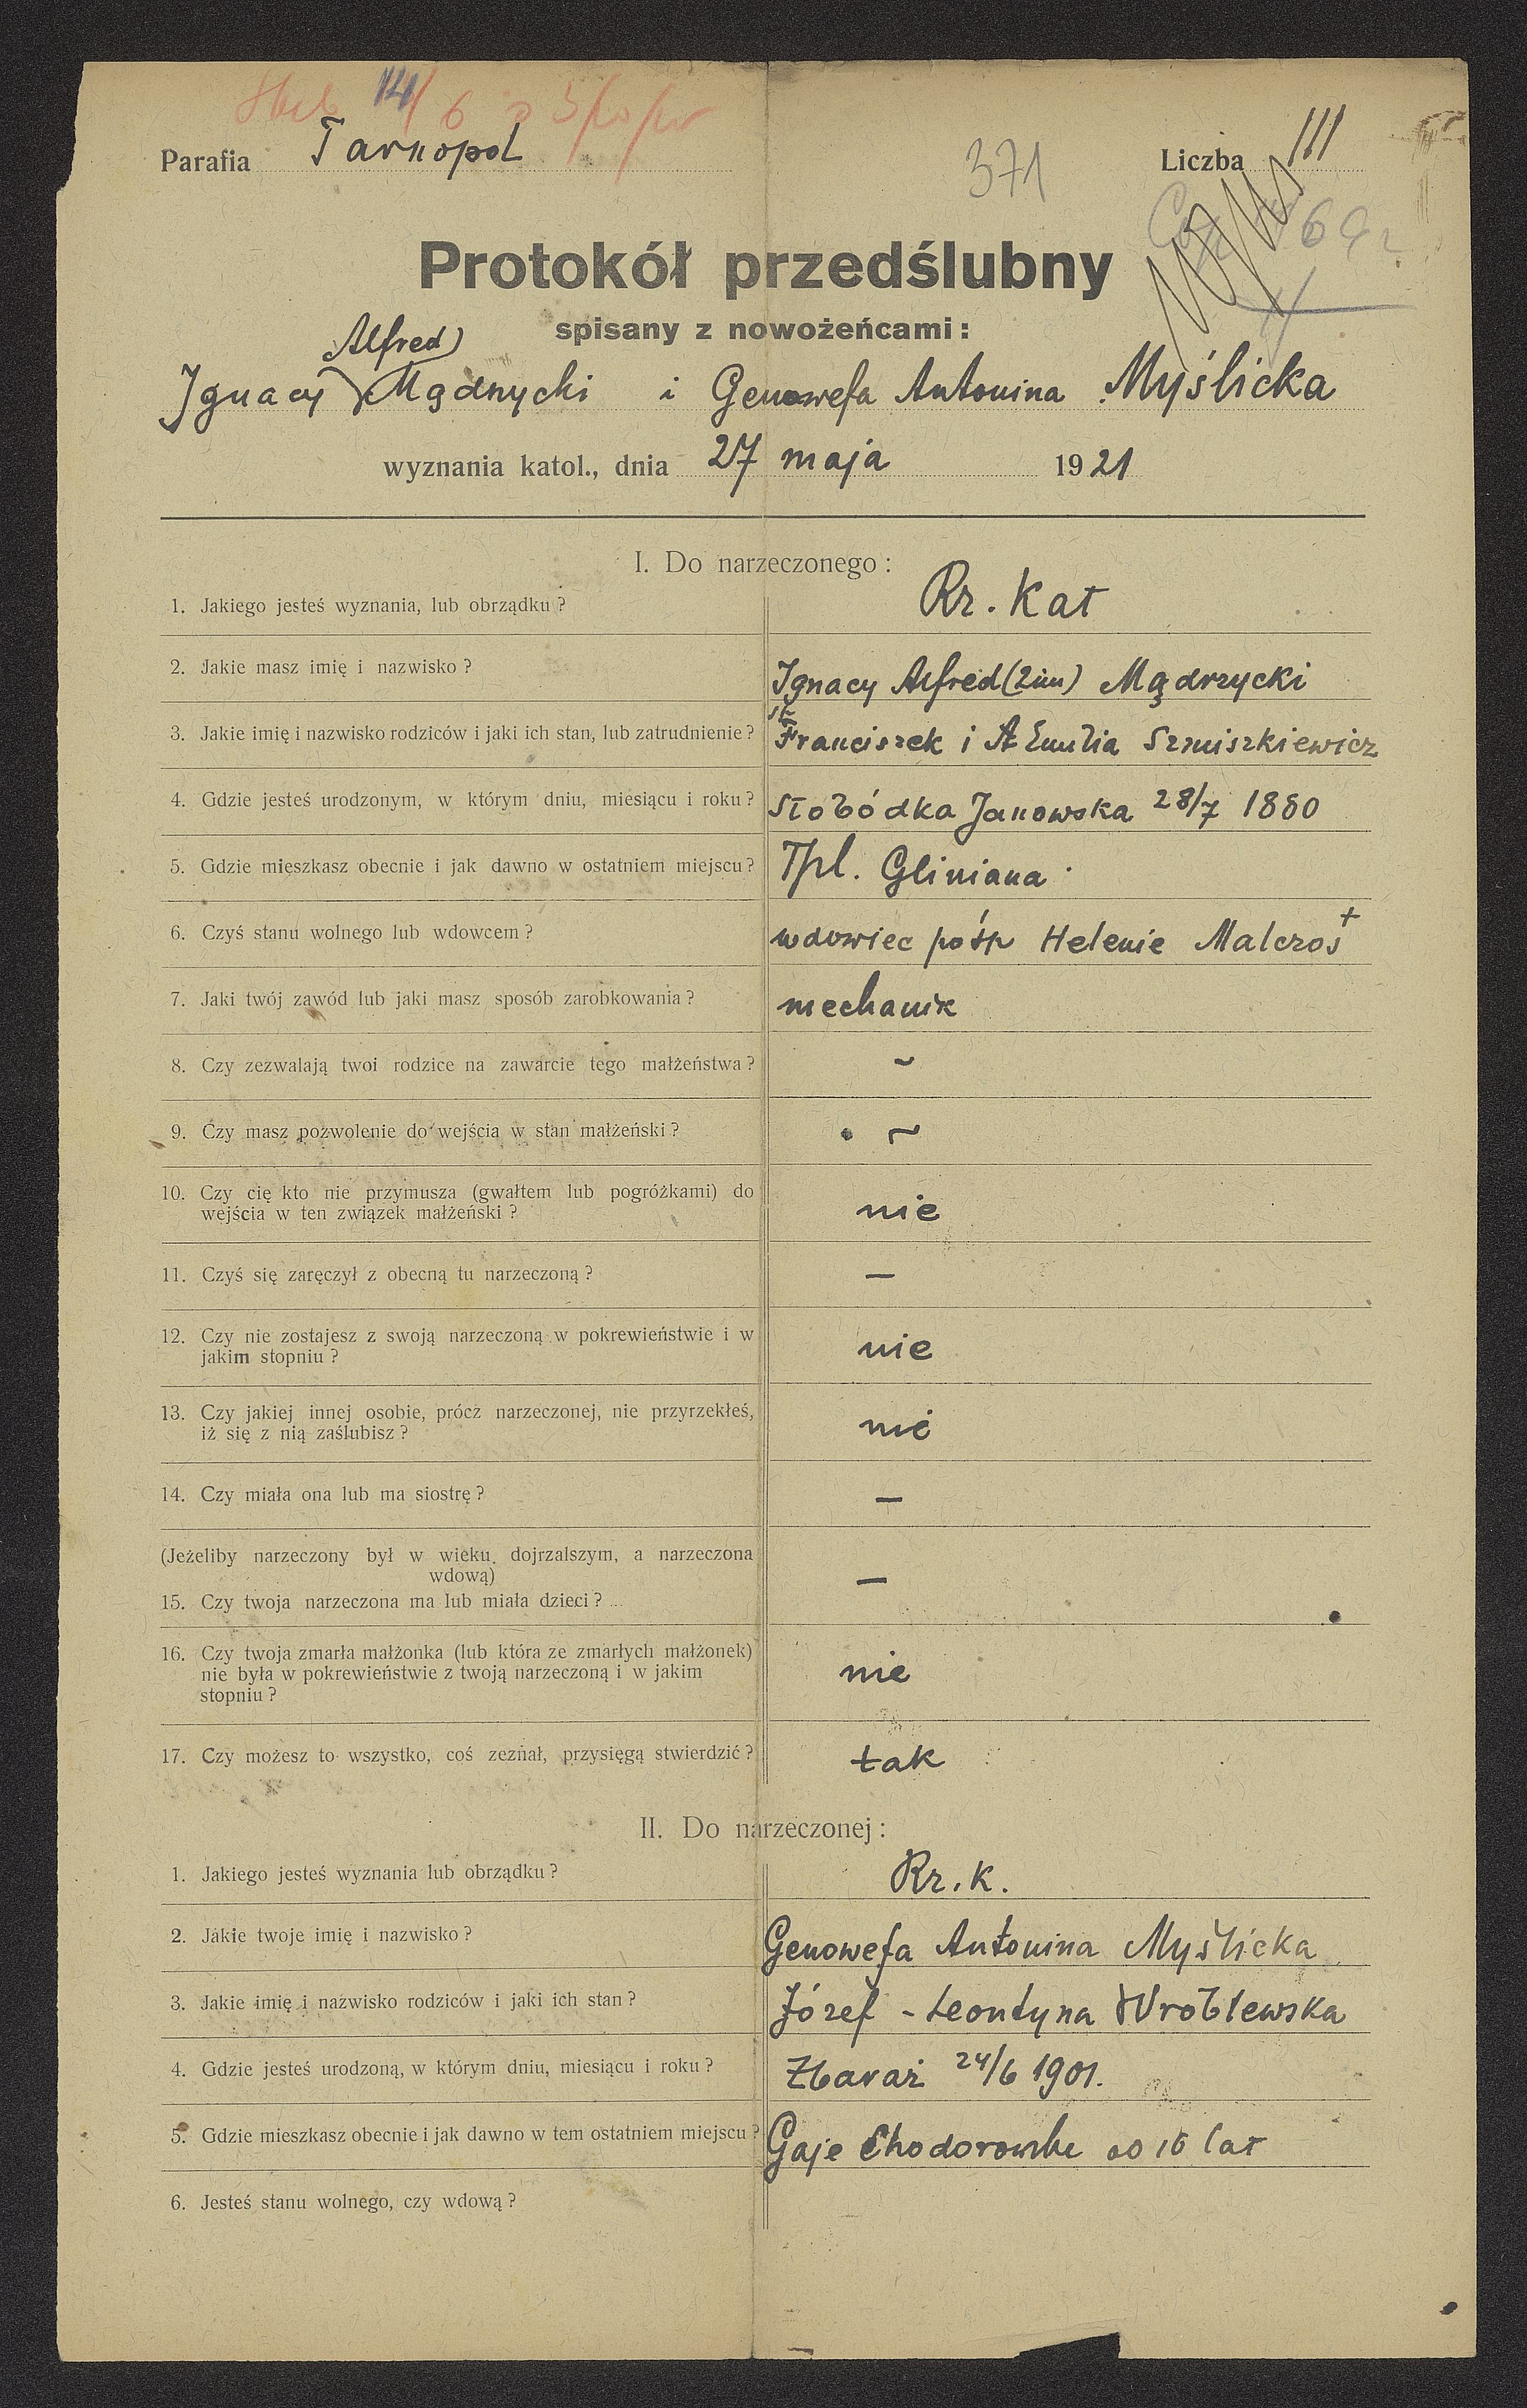 14/6
Parafia Tarnopol
371
Liczba 111
Protokół przedślubny
spisany z nowożeńcami:
Alfred
Ignacy Mądrzycki i Genowefa Antonina Myślicka
wyznania katol., dnia 27 maja 1921
I. Do narzeczonego:
1. Jakiego jesteś wyznania, lub obrządku? Rz. Kat
2. Jakie masz imię i nazwisko? Ignacy Alfred (2im) Mądrzycki
3. Jakie imię i nazwisko rodziców i jaki ich stan, lub zatrudnienie? Franciszek i Emilia Szmiszkiewicz
4. Gdzie jesteś urodzonym, w którym dniu, miesiącu i roku? Słobódka Janowska 28/7 1880
5. Gdzie mieszkasz obecnie i jak dawno w ostatniem miejscu? Tpl. Gliniana
6. Czyś stanu wolnego lub wdowcem? wdowiec pośp Helenie Malczos +
7. Jaki twój zawód lub jaki masz sposób zarobkowania? mechanik
8. Czy zezwalają twoi rodzice na zawarcie tego małżeństwa? ~
9. Czy masz pozwolenie do wejścia w stan małżeński? ~
10. Czy cię kto nie przymusza (gwałtem lub pogróżkami) do
wejścia w ten związek małżeński? nie
11. Czyś się zaręczył z obecną tu narzeczoną? —
12. Czy nie zostajesz z swoją narzeczoną w pokrewieństwie i w
jakim stopniu? nie
13. Czy jakiej innej osobie, prócz narzeczonej, nie przyrzekłeś,
iż się z nią zaślubisz? nie
14. Czy miała ona lub ma siostrę? —
(Jeżeliby narzeczony był w wieku dojrzalszym, a narzeczona
wdową)
15. Czy twoja narzeczona ma lub miała dzieci? ... —
16. Czy twoja zmarła małżonka (lub która ze zmarłych małżonek)
nie była w pokrewieństwie z twoją narzeczoną i w jakim
stopniu? nie
17. Czy możesz to wszystko, coś zeznał, przysięgą stwierdzić? tak
II. Do narzeczonej:
1. Jakiego jesteś wyznania lub obrządku? Rz. k.
2. Jakie twoje imię i nazwisko? Genowefa Antonina Myślicka
3. Jakie imię i nazwisko rodziców i jaki ich stan? Józef - Leontyna Wroblewska
4. Gdzie jesteś urodzoną, w którym dniu, miesiącu i roku? Zbaraż 24/6 1901.
5. Gdzie mieszkasz obecnie i jak dawno w tem ostatniem miejscu? Gaje Chodorowskie od 16 lat
6. Jesteś stanu wolnego, czy wdową?